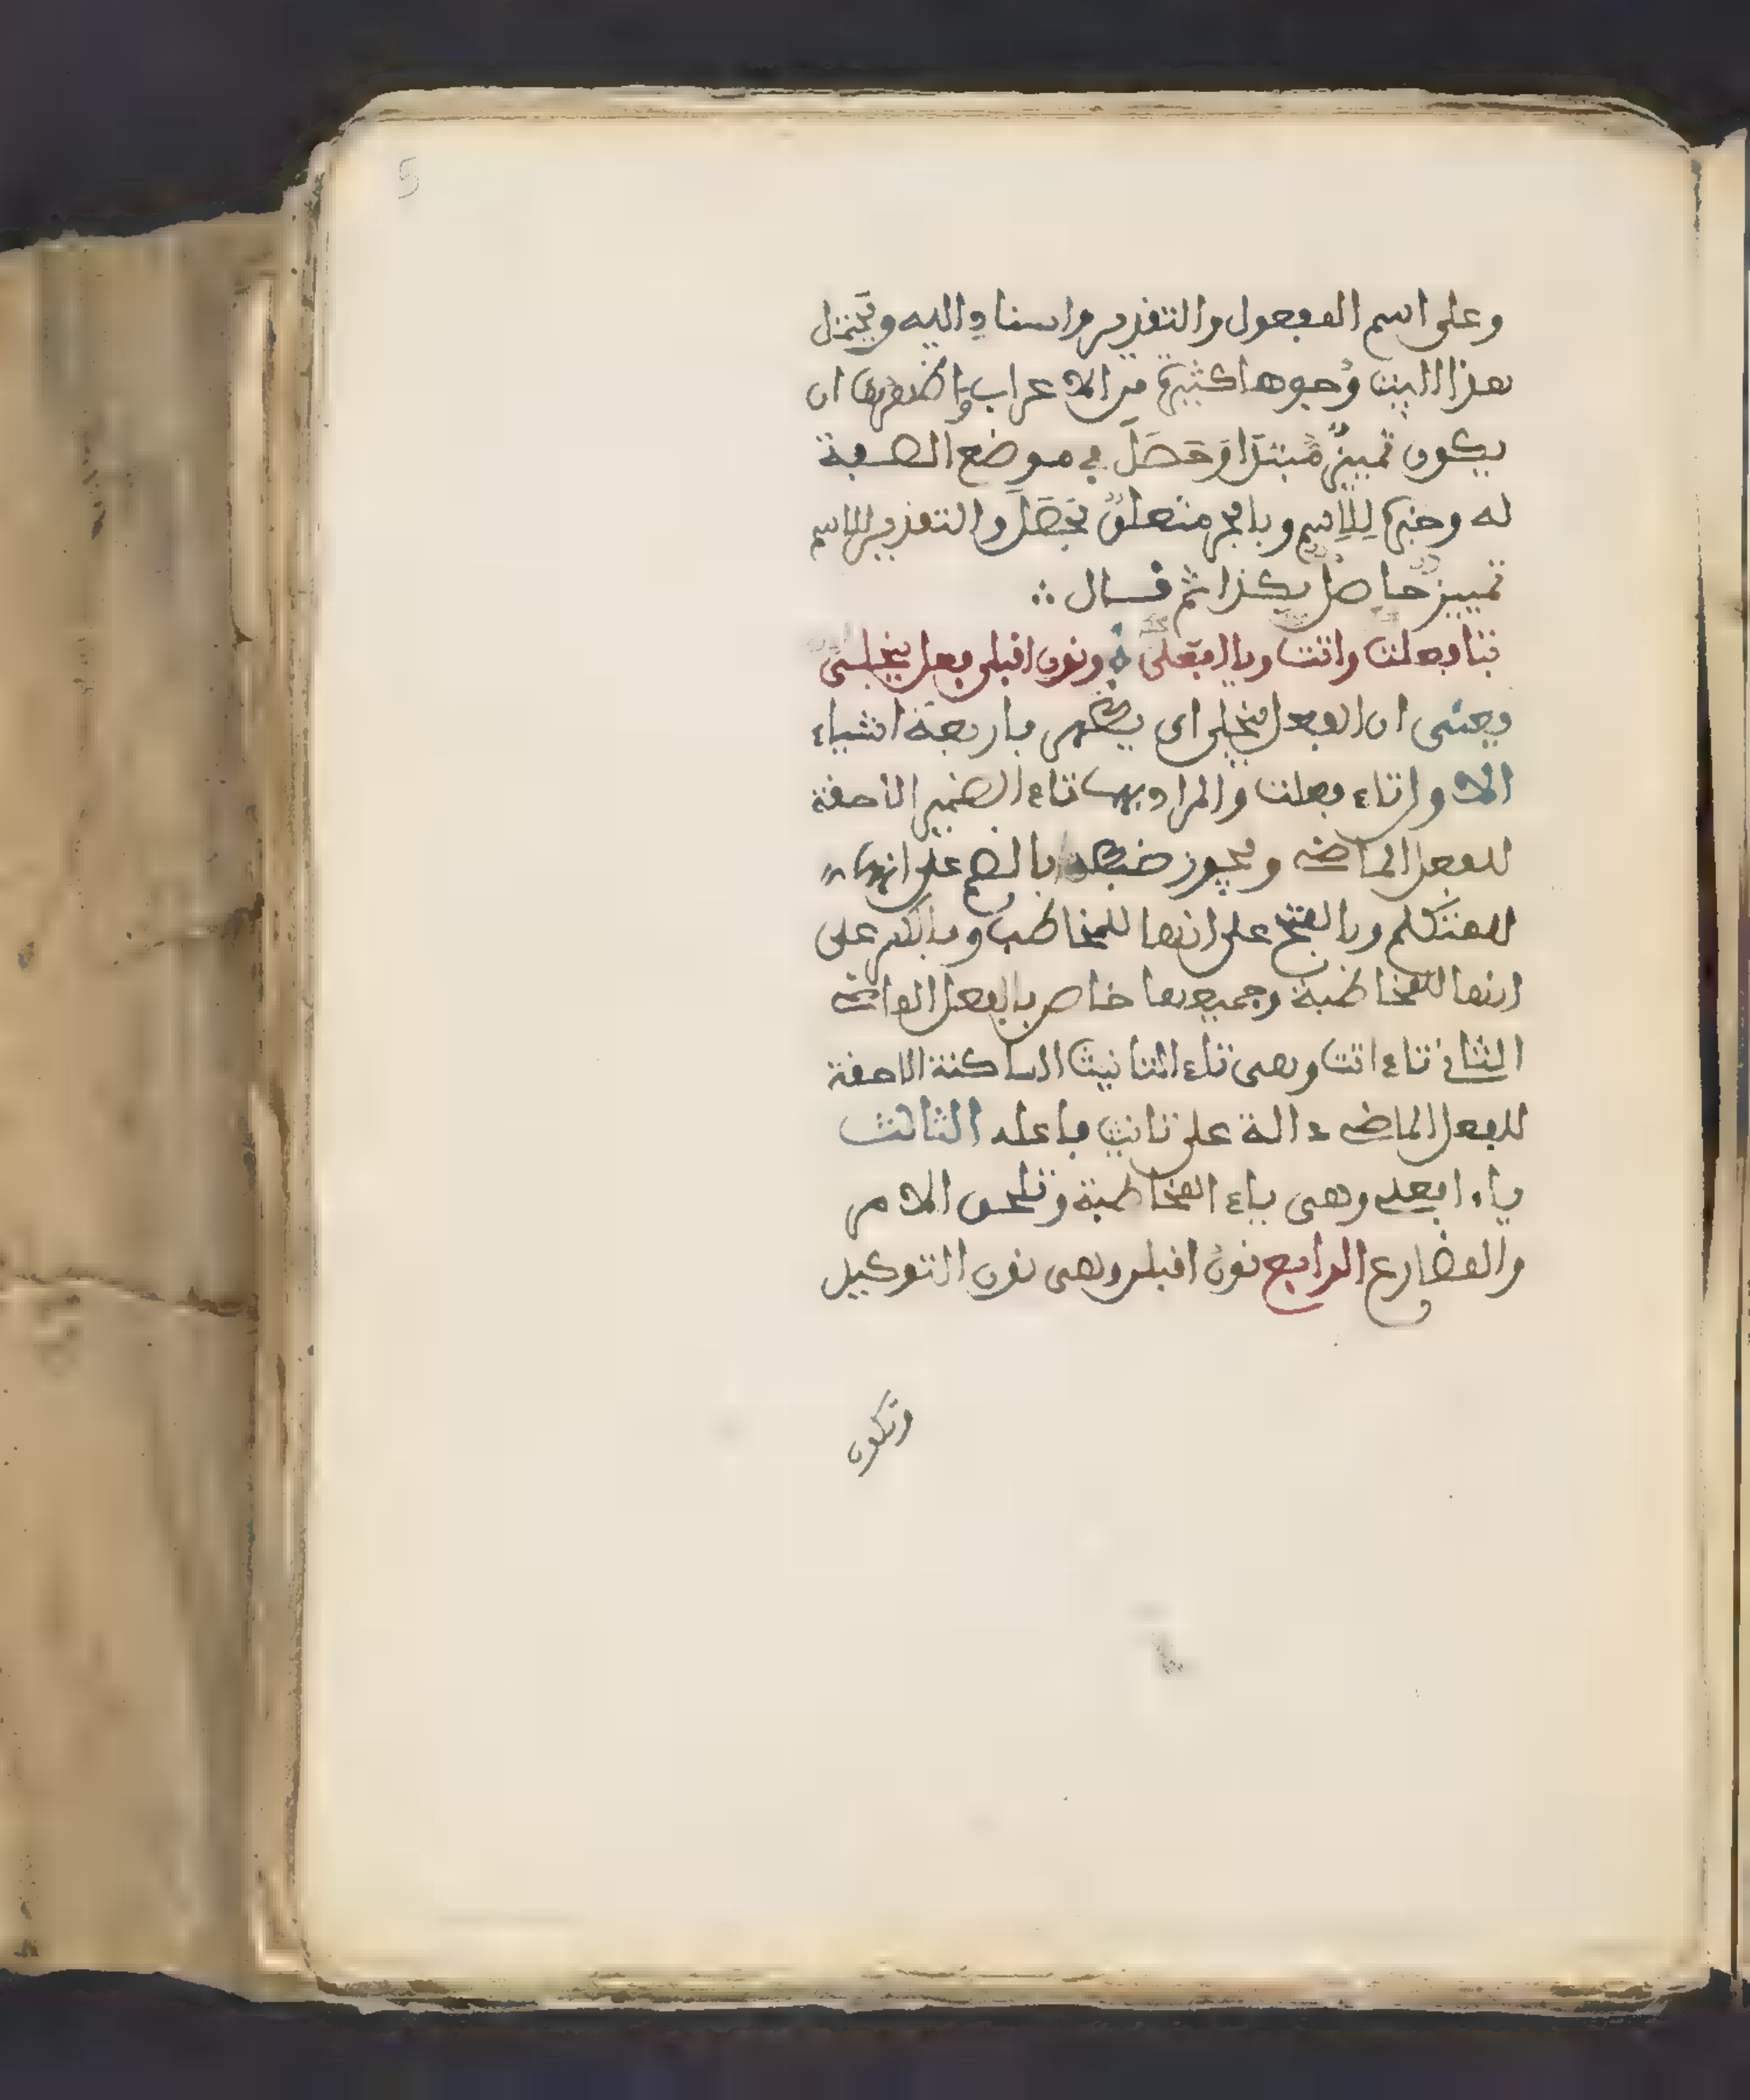 5
وعلى اسم المفعول والتقدير واسناد اليه ويحتمل
هذا البيت وُجوها كثيرة من الاعراب واظهرها ان
يكون تمييزٌ مُبتدَا وَحَصَلَ في موضع الصفة
له وخبره لِلاِسمِ وبالجر متعلقٌ بحَصَلَ والتقدير للاسم
تمييزٌ حاصلٌ بكذا ثم قال ∴
بتا فعلت واتت ويا افعلى ونون اقبلن فعل ينجلى
ويعنى ان الفعل ينجلى اى يظهر باربعة اشياء
الاول تاء فعلت والمراد بها تاء الضمير اللاحقة
للفعل الماضى ويجوز ضبطها بالضم على انها
للمتكلم وبالفتح على انها للمخاطب وبالكسر على
انها للمخاطبة وجميعها خاص بالفعل الماضى
الثانى تاء اتت وهى تاء التانيث الساكنة اللاحقة
للفعل الماضى دالة على تانيث فاعله الثالث
ياء افعلى وهى ياء المخاطبة وتلحق الامر
والمضارع الرابع نونُ اقبلن وهى نون التوكيد
وتكون